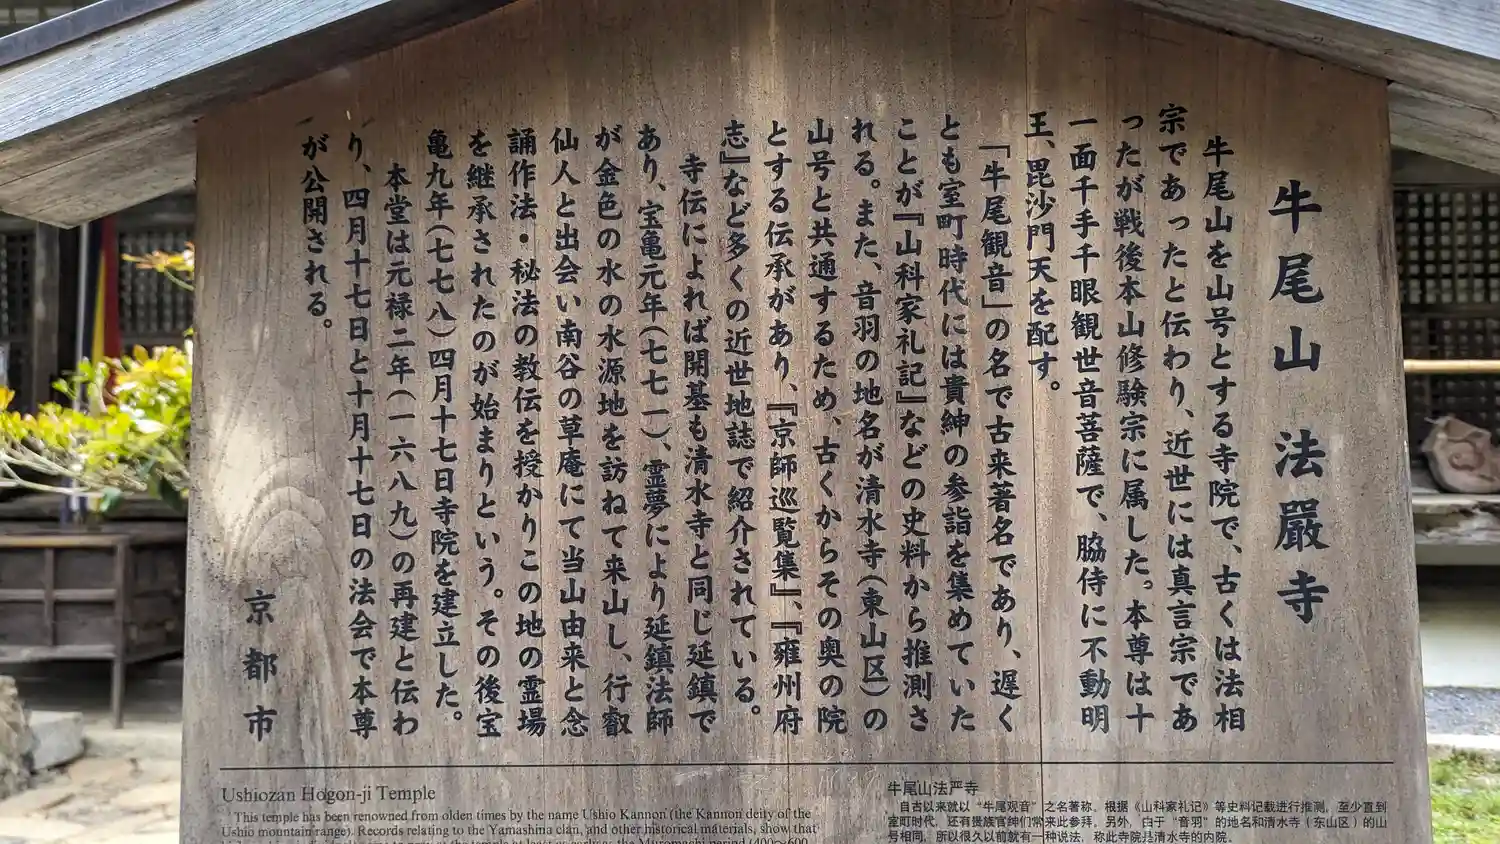 牛尾山 法嚴寺
牛尾山を山号とする寺院で、古くは法相
宗であったと伝わり、近世には真言宗であ
ったが戦後本山修験宗に属した。本尊は十
一面千手千眼観世音菩薩で、脇侍に不動明
王、毘沙門天を配す。
「牛尾観音」の名で古来著名であり、遅く
とも室町時代には貴紳の参詣を集めていた
ことが『山科家礼記』などの史料から推測さ
れる。また、音羽の地名が清水寺(東山区)の
山号と共通するため、古くからその奥の院
とする伝承があり、『京師巡覧集』、『雍州府
志』など多くの近世地誌で紹介されている。
寺伝によれば開基も清水寺と同じ延鎮で
あり、宝亀元年(七七一)、霊夢により延鎮法師
が金色の水の水源地を訪ねて来山し、行叡
仙人と出会い南谷の草庵にて当山由来と念
誦作法・秘法の教伝を授かりこの地の霊場
を継承されたのが始まりという。その後宝
亀九年(七七八)四月十七日寺院を建立した。
本堂は元禄二年(一六八九)の再建と伝わ
り、四月十七日と十月十七日の法会で本尊
が公開される。
京都市
Ushiozan Hogon-ji Temple
This temple has been renowned from olden times by the name Ushio Kannon (the Kannon deity of the
Ushio mountain range). Records relating to the Yamashina clan, and other historical materials, show that
牛尾山法严寺
自古以来就以“牛尾观音”之名著称。根据《山科家礼记》等史料记载进行推测，至少直到
室町时代，还有贵族官绅们常来此参拜。另外，由于“音羽”的地名和清水寺（东山区）的山
号相同，所以很久以前就有一种说法，称此寺院是清水寺的内院。